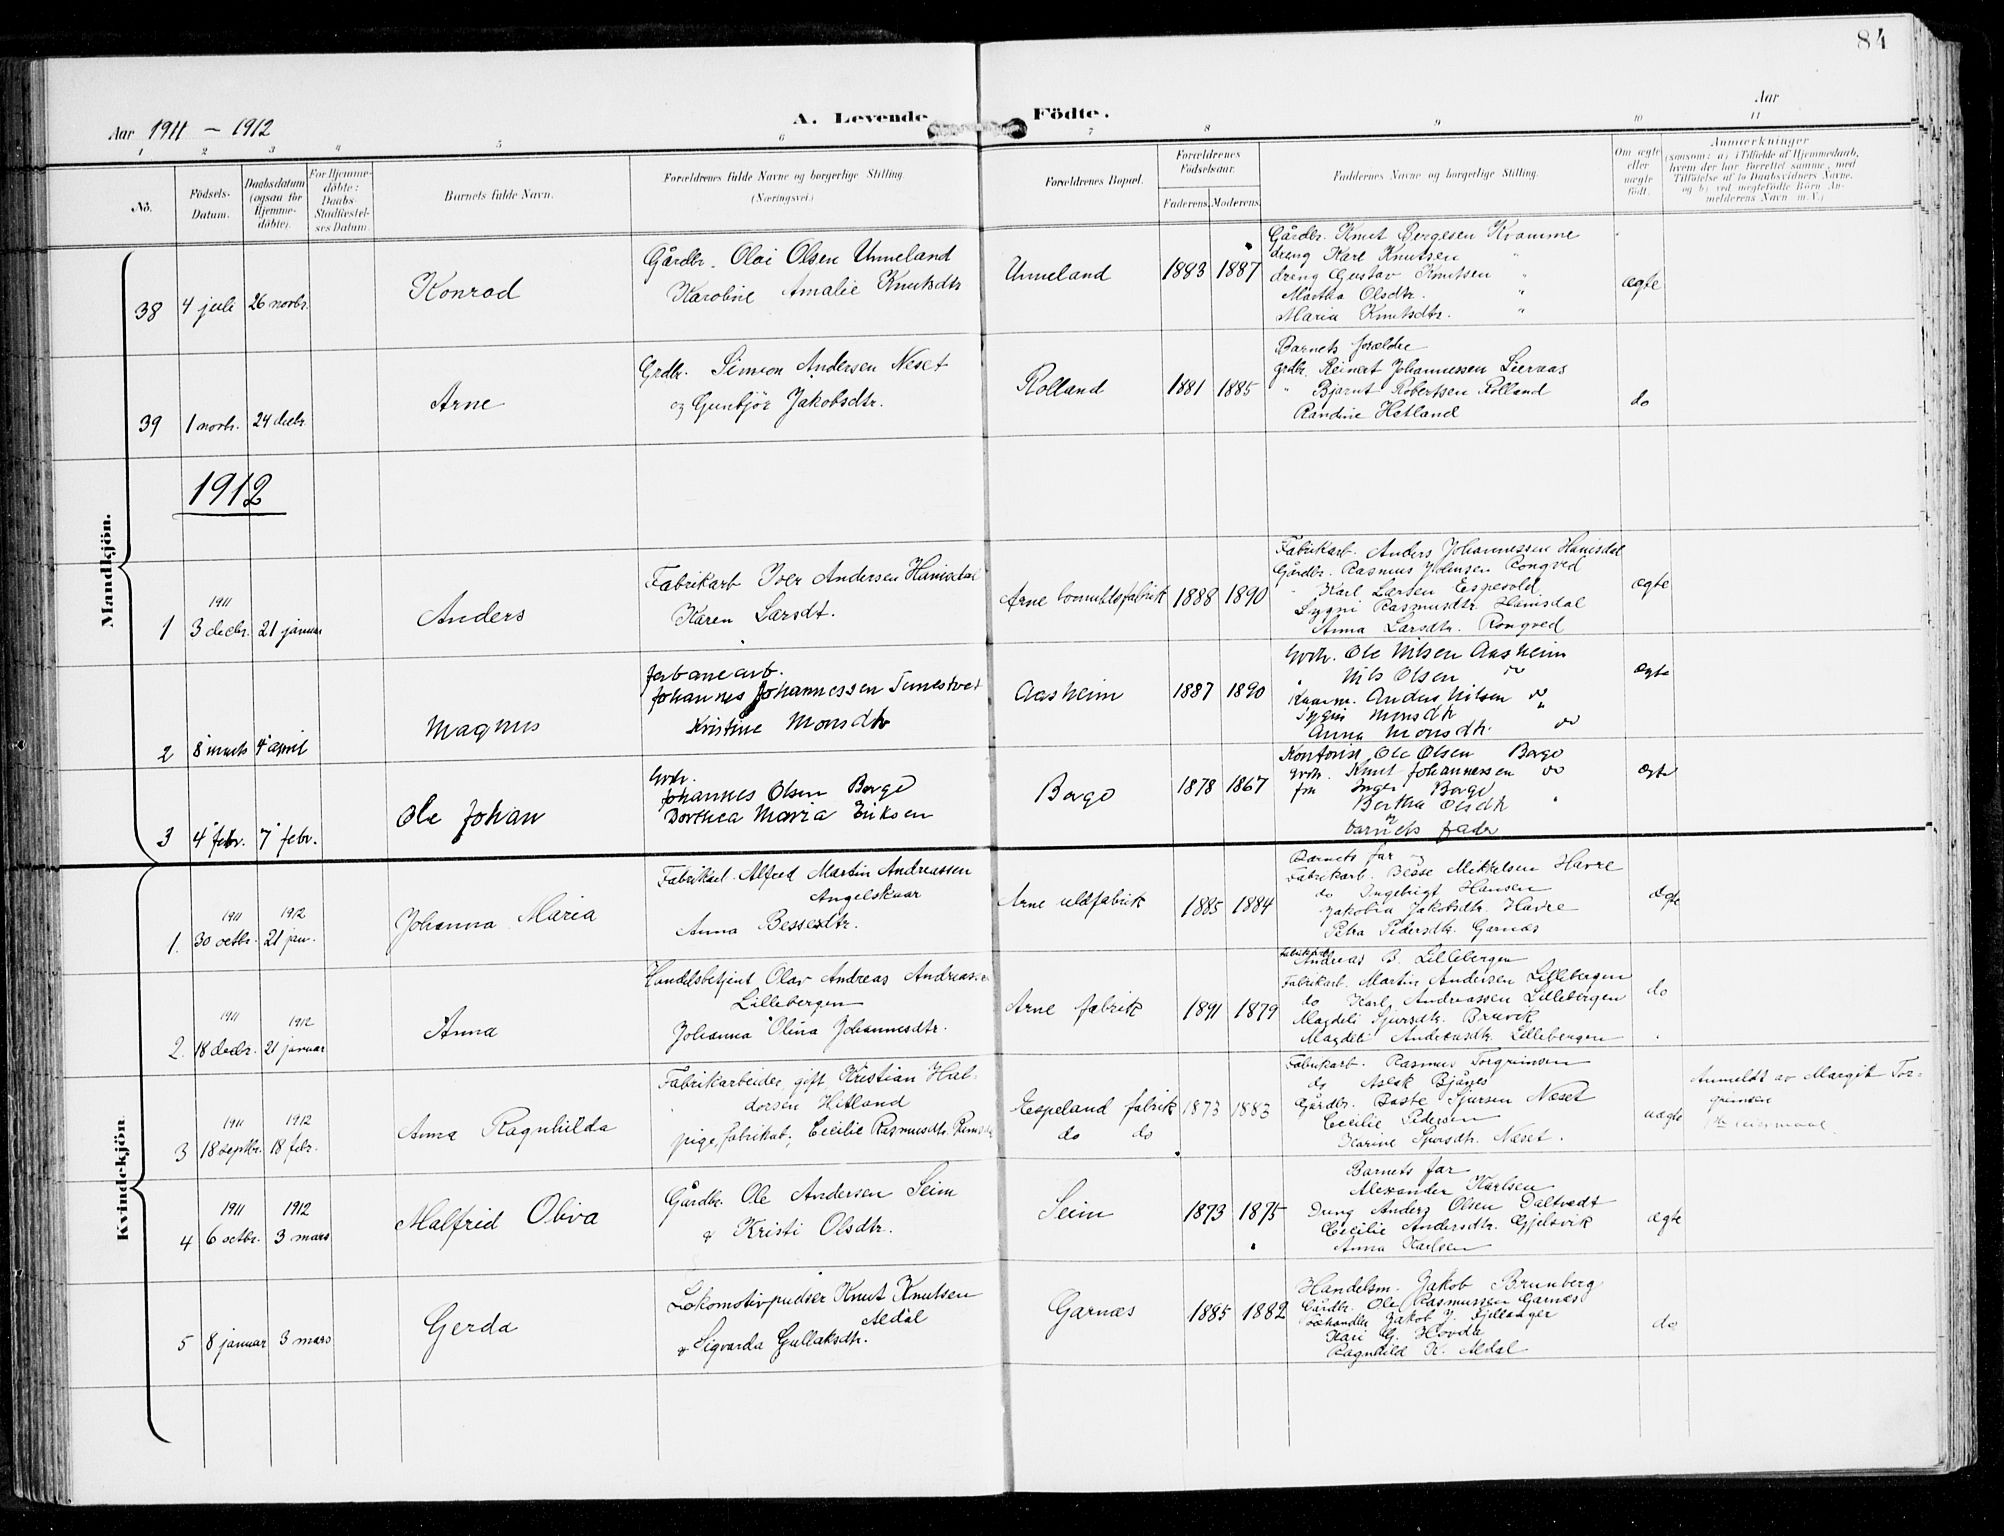 84
Aar 1911 – 1912
A. Levende Födte.
Aar
1 2 3 4 5 6 7 8 9 10 11
Nō.
Födsels-Datum.
Daabsdatum (ogsaa for Hjemmedöbte).
For Hjemmedöbte: Daabs Stadfæstelses Datum.
Barnets fulde Navn.
Forældrenes fulde Navne og borgerlige Stilling
(Næringsvei.)
Forældrenes Bopæl.
Forældrenes Födselsaar.
Faderens. Moderens.
Faddernes Navne og borgerlige Stilling.
Om ægte eller uægte födt.
Anmærkninger
(saasom: a) i Tilfælde af Hjemmedaab, hvem der har forrettet samme, med Tilföielse af to Daabsvidners Navne, og b) ved uægtefödte Börn Anmelderens Navn m. V.)
Mandkjön.
38 4 juli 26 novbr.
Konrad
Gårdbr. Olai Olsen Unneland
Karoline Amalie Knutsdtr
Unneland
1883 1887
Gårdbr. Knut Bergesen Kvamme
dreng Karl Knutsen "
dreng Gustav Knutsen "
Martha Olsdtr. "
Maria Knutsdtr. "
ægte
39 1 novbr. 24 decbr.
Arne
Grdbr. Simon Andersen Neset
og Gunbjör Jakobsdtr.
Rolland
1881 1885
Barnets forældre
grdbr. Reinert Johannessen
" Bjarnt Robertsen Rolland
Randine Hatland
do
1912
1 1911 3 decbr. 21 januar
Anders
Fabrikarb Iver Andersen Hanisdal
Karen Larsdt.
Arne bomuldsfabrik
1888 1890
Fabrikarb. Anders Johannessen Hanisdal
Gårdbr. Rasmus Johnsen Rongved
" Karl Larsen Espevold
Sygni Rasmusdtr. Hanisdal
Anna Larsdtr. Rongved
ægte
2 8 marts 4 april
Magnus
Jerbanearb.
Johannes Johannessen
Kristine Monsdtr
Aasheim
1887 1890
Grdbr. Ole Nilsen Aasheim
" Nils Olsen do
Anders Nilsen do
Sygni Monsdtr "
Anna Monsdtr. do
ægte
3 4 febr. 7 febr.
Ole Johan
Grdbr.
Johannes Olsen Borge
Dorthea Maria Eriksen
Borge
1878 1867
Kontorist Ole Olsen Borge
Grdbr. Knut Johannessen do
fru Inger Borge
Bertha Olsdtr "
og
barnets fader
ægte
Kvindekjön
1. 1911 30 octbr. 1912 21 jan.
Johanna Maria
Fabrikarb. Alfred Martin Andreassen
Angelskaar
Anna Bessesdtr.
Arne uldfabrik
1885 1884
Barnets far og
Fabrikarb. Besse Mikkelsen Havre
do Ingebrigt Hansen
Jakobia Jakobsdtr. Havre
Petra Pedersdtr. Garnæs
ægte
2. 1911 18 decbr. 1912 21 januar
Anna
Handelsbetjent Olav Andreas Andreassen
Lillebergen
Johanna Olina Johannesdtr.
Arne fabrik
1891 1879
Andreas B. Lillebergen
Fabrikarb. Martin Andersen Lillebergen
do Karl Andreassen Lillebergen
Magdeli Sjursdtr. Bruvik
Magdeli Andersdtr. Lillebergen
do
3 1911 18 septbr. 1912 18 febr.
Anna Ragnhilda
Fabrikarbeider, gift, Kristian Haldorsen Hitland
pige, fabrikab., Cecilie Rasmusdtr.
Espeland fabrik
do do
1873 1883
Fabrikarb. Rasmus Torgrimsen
do Aslak Bjånes
Gårdbr. Baste Sjursen Neset
Cecilie Pedersen
Karine Sjursdtr. Neset.
uægte
Anmeldt av Margit Torgrimsen
4 1911 6 octbr. 1912 3 mars
Malfrid Oliva
Gårdbr. Ole Andersen Seim
& Kristi Olsdtr.
Seim
1873 1875
Barnets far
Alexander Karlsen
Ung. Anders Olsen Daltvedt
Cecilie Andersdtr. Gjelsvik
Anna Karlsen
ægte
5 8 januar 3 mars
Gerda
Lokomotivpudser Knut Knutsen
Medal
& Sigvarda Gullaksdtr.
Garnæs
1885 1882
Handelsm. Jakob Brunberg
Gårdbr. Ole Rasmussen Garnæs
Jakob J. Fjellanger
Kari G. Hovda
Ragnhild K. Medal
do